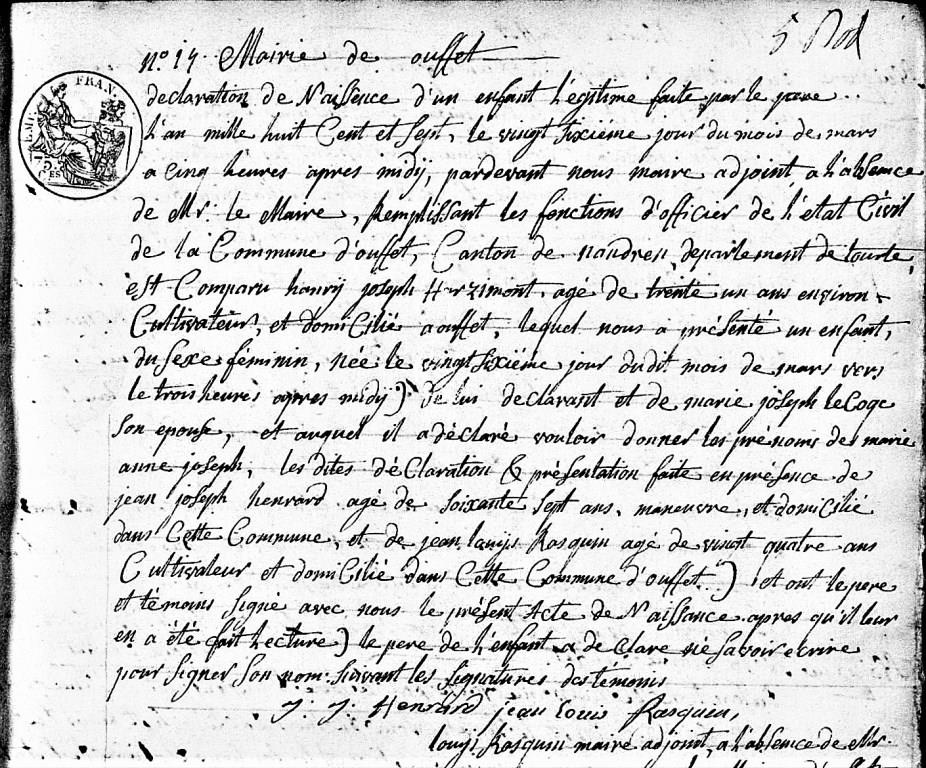 n° 14. Mairie de ouffet
EMP. FRAN.
declaration de Naissence d'un enfant Légitime faite par le pere
L'an mille huit Cent et Sept, le vingt Sixiéme jour du mois de mars
a Cinq heures apres midÿ, pardevant nous maire adjoint, a L'absence
de Mr. le Maire, Remplissant les fonctions d'officier de L'état Civil
de la Commune d'ouffet, Canton de nandren, departement de Lourte,
est Comparu hanrÿ joseph agé de trente un ans environ
Cultivateur, et domicilié a ouffet, lequel nous a présenté un enfant,
du Sexe féminin, née le vingt Sixiéme jour dudit mois de mars vers
le trois heures apres midÿ) de lui declarant et de marie joseph le Coqe
Son epouse, et auquel il a déclaré vouloir donner les prénoms de marie
anne joseph, les dites déClaration & présentation faite en présence de
jean joseph henrard agé de Soixante Sept ans, maneuvre, et domicilié
dans Cette Commune, et de jean louÿs Rasquin agé de vingt quatre ans
Cultivateur et domicilié dans Cette Commune d'ouffet) et ont le pere
et témoins Signé avec nous le présent Acte de Naissance apres qu'il leur
en a été fait Lecture) le pere de L'enfant a de Clare né Savoir ecrire
pour Signer Son nom. Suivant les Signatures des temoins
J. J. Henrard jean louis Rasquin,
louÿs Rasquin maire adjoint, a L'absence de Mr.